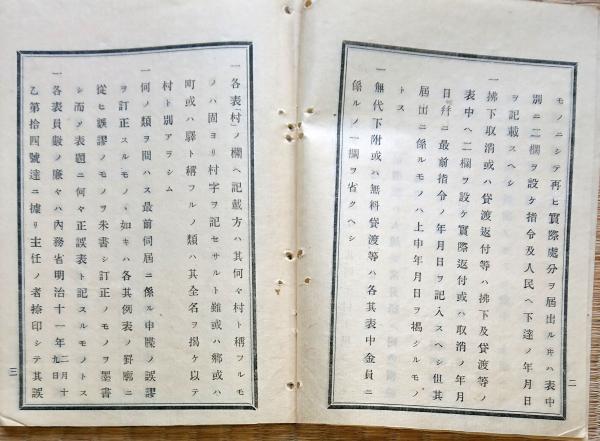 モノニシテ再ヒ實際處分ヲ屆出ルヰハ表中
別ニ二欄ヲ設ケ指令及人民ヘ下達ノ年月日
ヲ記載スヘシ
一拂下取消或ハ貸渡返付等ハ拂下及貸渡等ノ
表中ヘ二欄ヲ設ケ實際返付或ハ取消ノ年月
日幷ニ最前指令ノ年月日ヲ記入スヘシ但其
屆出ニ係ルモノハ上申年月日ヲ揭クルモノ
トス
一無代下附或ハ無料貸渡等ハ各其表中金員ニ
係ルノ一欄ヲ省クヘシ
二
一各表「村」ノ欄ヘ記載方ハ其何々村ト稱フルモ
ノハ固ヨリ村字ヲ記セサルト雖或ハ鄕或ハ
町或ハ驛ト稱フルノ類ハ其全名ヲ揭ケ以テ
村ト別アラシム
一何ノ類ヲ問ハス最前伺屆ニ係ル申牒ノ誤謬
ヲ訂正スルモノヽ如キハ各其例表ノ罫廓ニ
從ヒ誤謬ノモノヲ朱書シ訂正ノモノヲ墨書
シ而〆表題ニ何々正誤表ト記スルモノトス
一各表員數ノ廉々ハ內務省明治十一年二月十九日
乙第拾四號達ニ據リ主任ノ者捺印シテ其誤
三